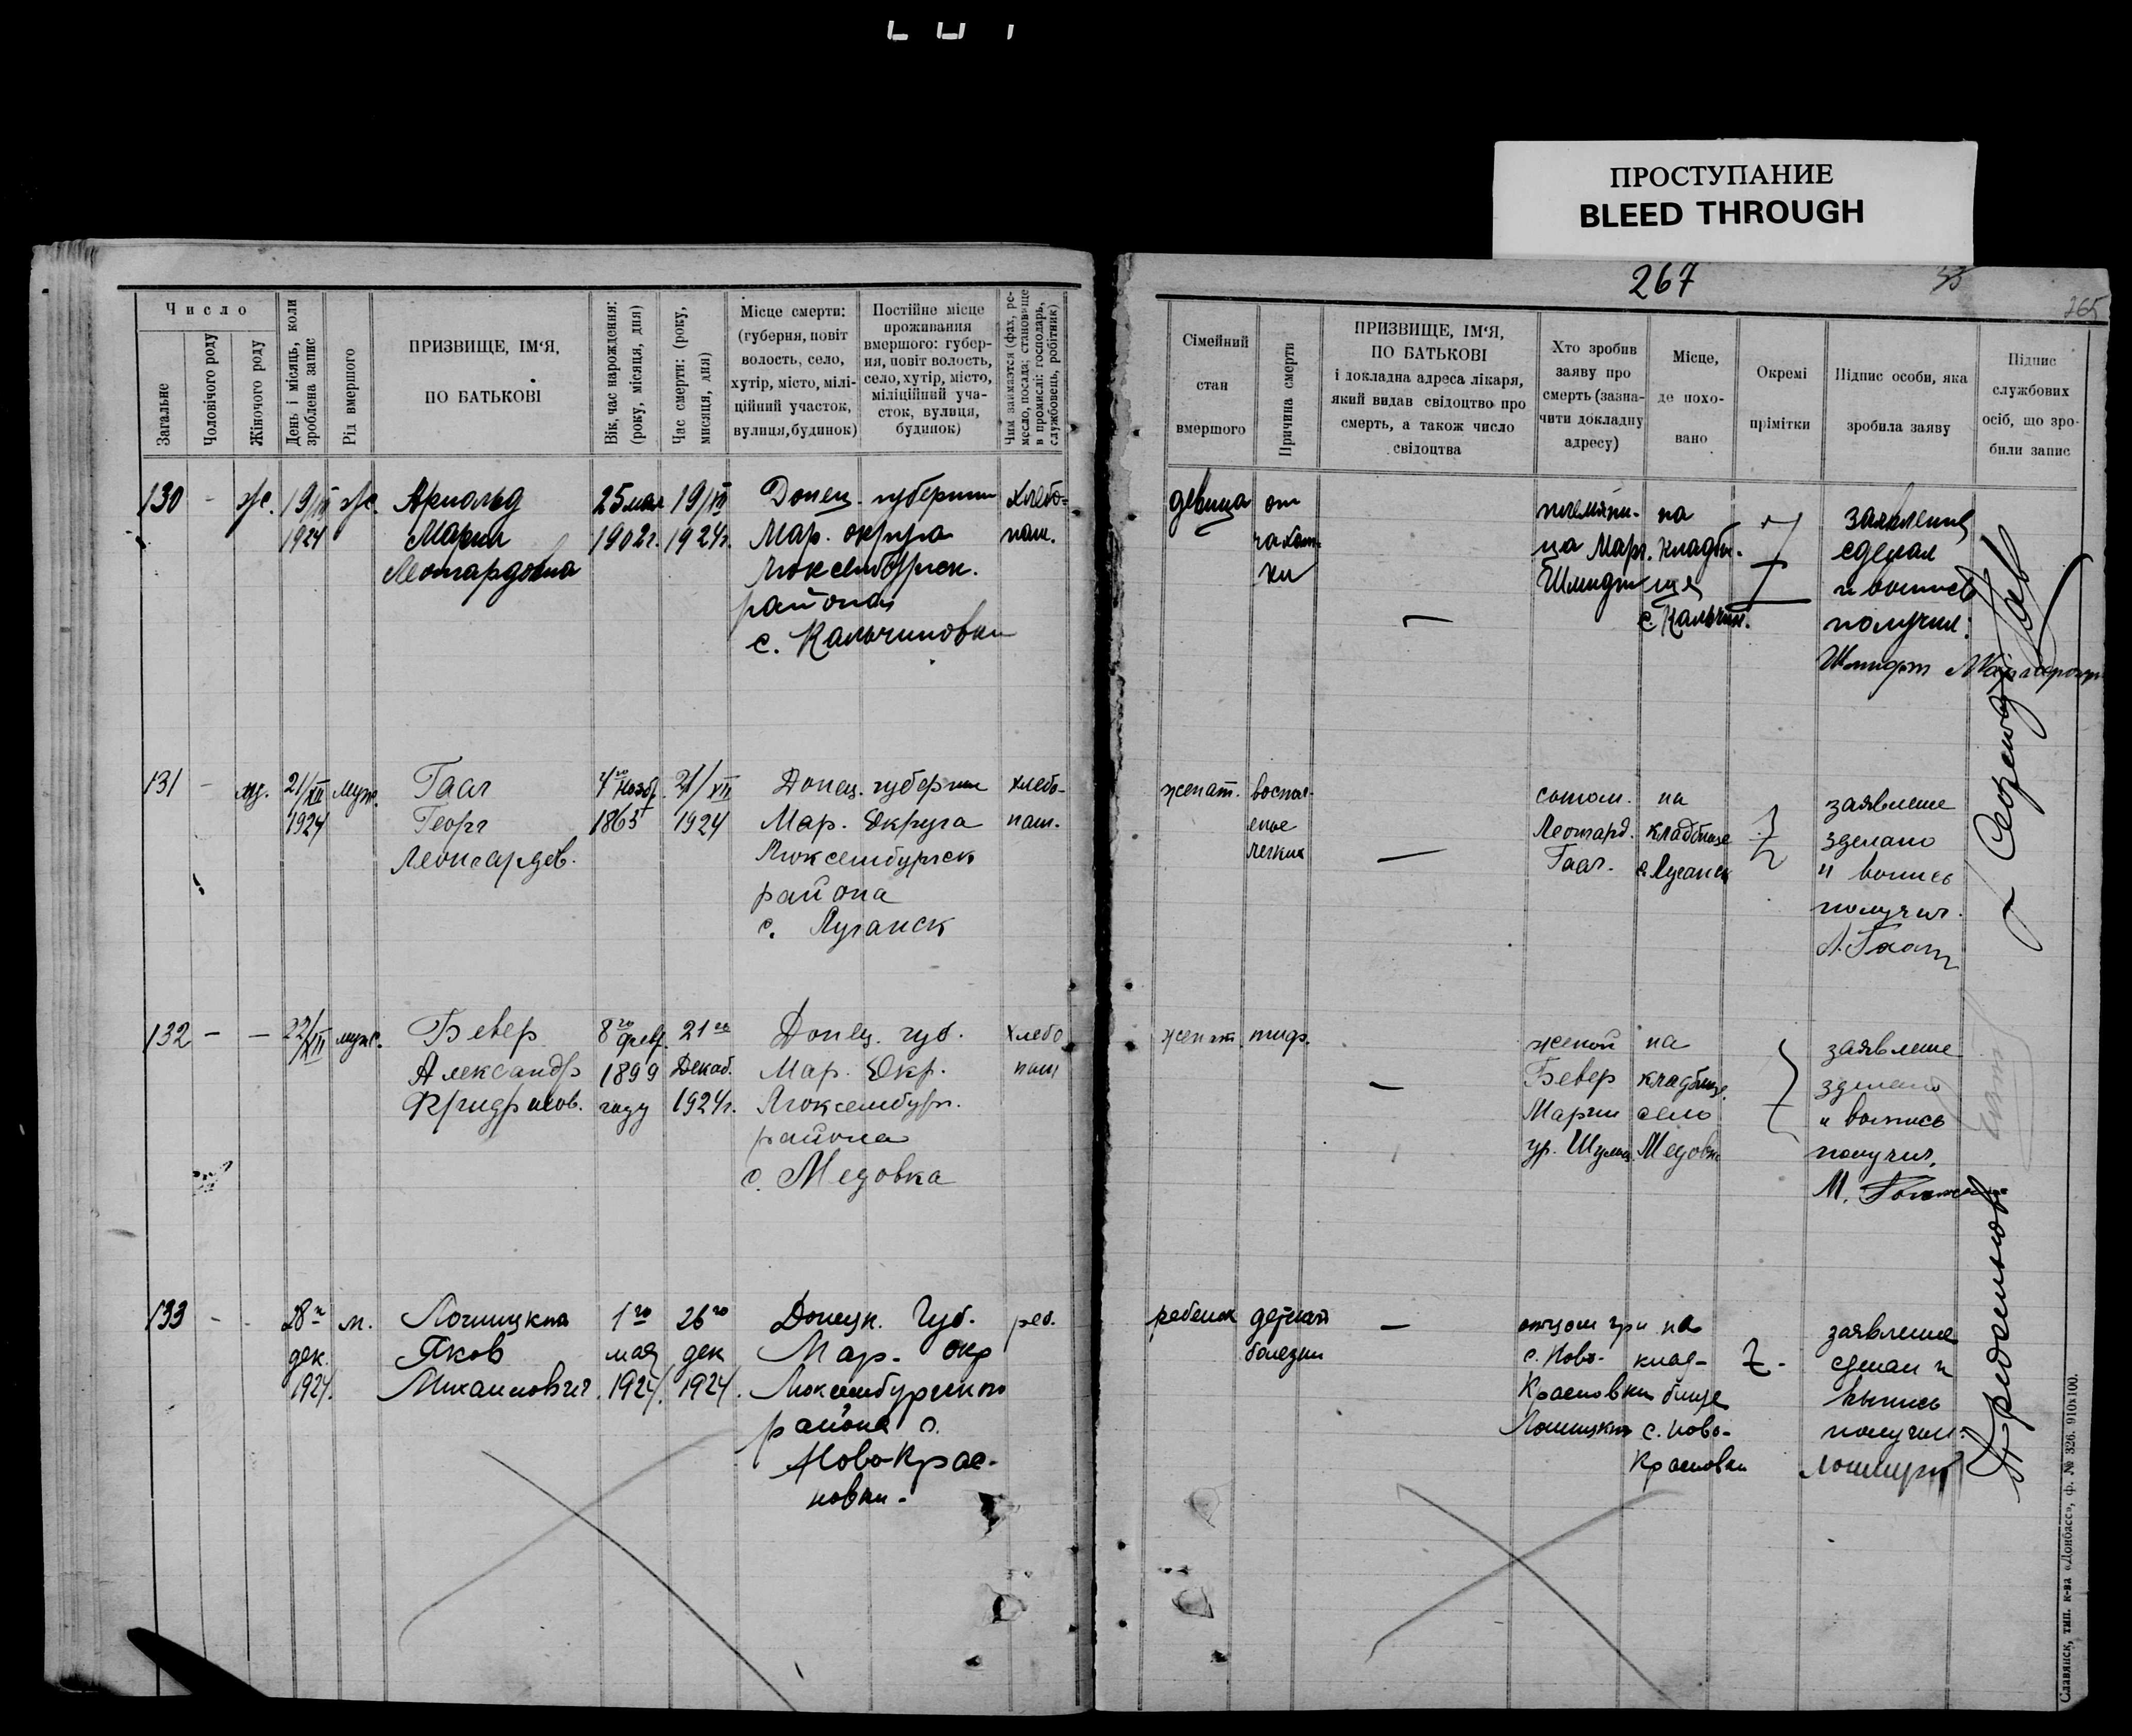 ПРОСТУПАНИЕ
BLEED THROUGH
267
265
Число
Загальне
Чоловічого роду
Жіночого роду
День і місяць, коли зроблена запис
Рід вмершого
ПРИЗВИЩЕ, ІМ'Я,
ПО БАТЬКОВІ
Вік, час нарождення: (року, місяця, дня)
Час смерти: (року, мисяця, дня)
Місце смерти:
(губерня, повіт
волость, село,
хутір, місто, мілі-
ційний участок,
вулиця, будинок)
Постійне місце
проживання
вмершого: губер-
ня, повіт волость,
село, хутір, місто,
міліційний уча-
сток, вулиця,
будинок)
Чим займается (фах, ре-
месло, посада; становище
в промислі: господарь,
службовець, робітник)
Сімейний
стан
вмершого
Причина смерти
ПРИЗВИЩЕ, ІМ'Я,
ПО БАТЬКОВІ
і докладна адреса лікаря,
який видав свідоцтво про
смерть, а також число
свідоцтва
Хто зробив
заяву про
смерть (зазна-
чити докладну
адресу)
Місце,
де похо-
вано
Окремі
прімітки
Підпис особи, яка
зробила заяву
Підпис
службових
осіб, що зро-
били запис
130 - ж. 19/XII 1924 ж.
Арнольд
Мария
Леонгардовна
25 мая
1902г.
19/XII
1924г.
Донец. губернии
Мар. округа
Люксембургск.
района
с. Кальчиновки
хлебо-
паш.
девица
от
чахот-
ки
—
племянни-
ца Марг.
Шмидт
на
кладби-
ще
с. Кальчин.
заявление
сделал
и выпись
получил:
Шмидт
131 - м. 21/XII 1924 муж.
Гааг
Георг
Леонгардов.
4го Нояб.
1865
21/XII
1924
Донец. губернии
Мар. Округа
Люксембургск
района
с. Луганск
хлебо-
паш.
женат.
воспал-
ение
легких
—
сыном.
Леонард.
Гааг.
на
кладбище
с. Луганск
заявление
зделано
и выпись
получил.
Л. Гааг
132 - - 22/XII муж.
Бевер
Александр
Фридрихов.
8го февр.
1899
году
21го
Декаб.
1924г.
Донец. губ.
Мар. Окр.
Люксембург.
района
с. Медовка
хлебо
паш
женат.
тиф.
—
женой
Бевер
Марии
ур. Шульц
на
кладбище
село
Медовка
заявление
зделано
и выпись
получил.
М.
133 - - 28го дек. 1924. м.
Яков
Михайлович
1го
мая
1924.
26го
дек
1924.
Донецк. Губ.
Мар. окр
Люксембургского
района с.
Ново-Крас-
новки.
реб.
ребенок
детской
болезни
—
отцом гр.
с. Ново-
Красновки
на
клад-
бище
с. Ново-
Красновки
заявление
сделал и
выпись
получил:
Славянск, тип. к-ва «Донбасс», ф. № 326. 910х100.